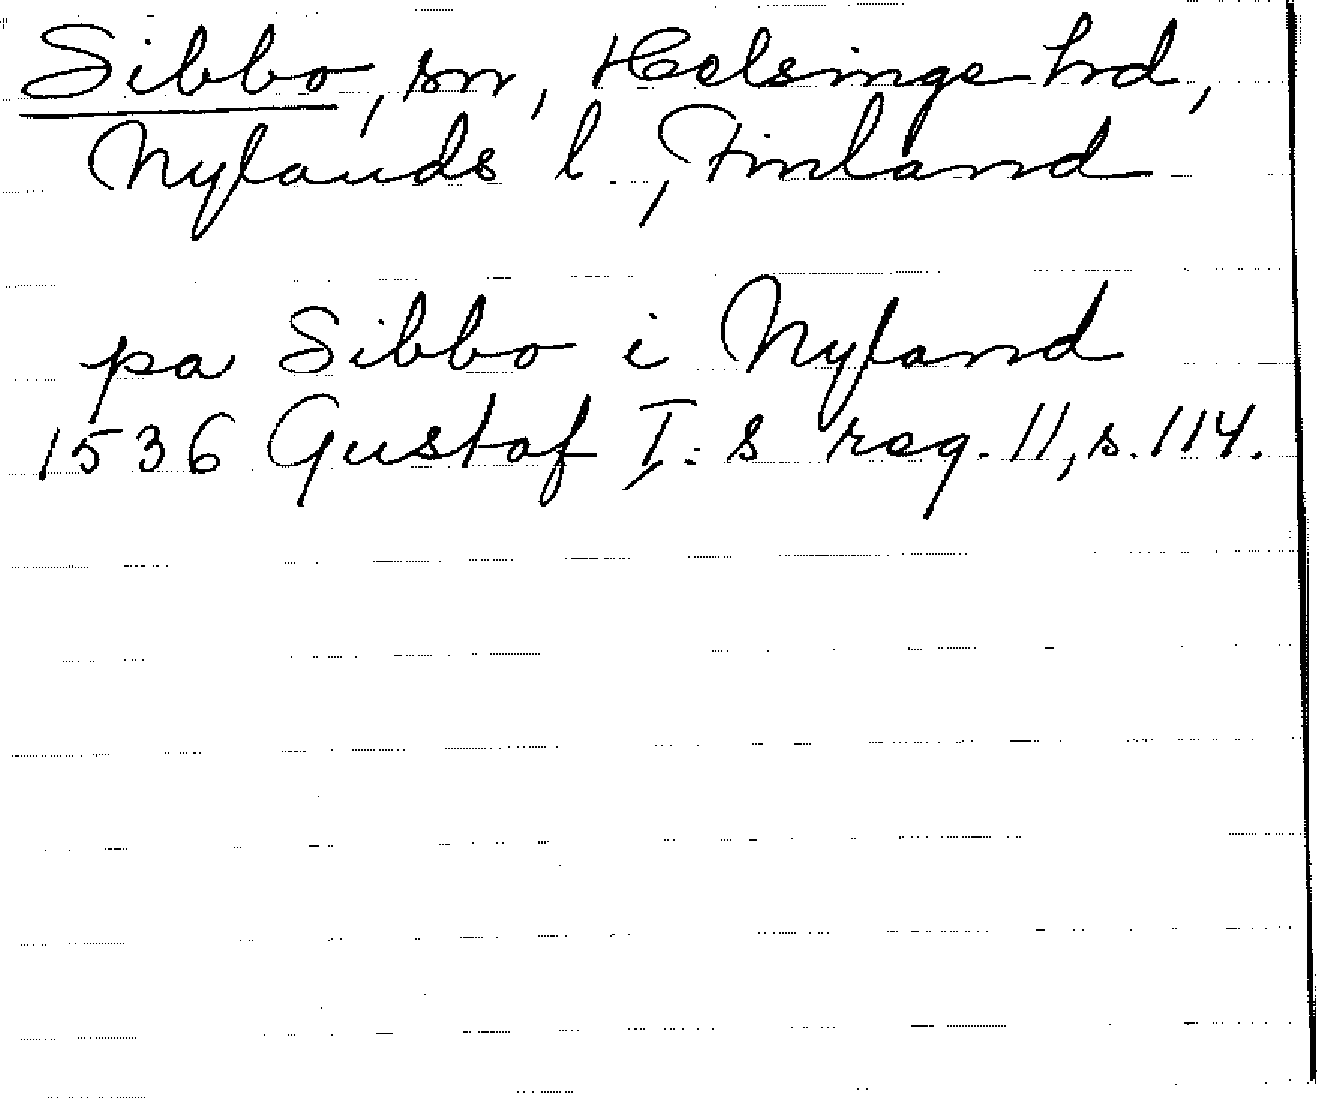 Sibbo, sn, Helsinge hrd,
Nylands l., Finland
pa Sibbo i Nyland
1536 Gustaf I:s reg. 11, s. 114.